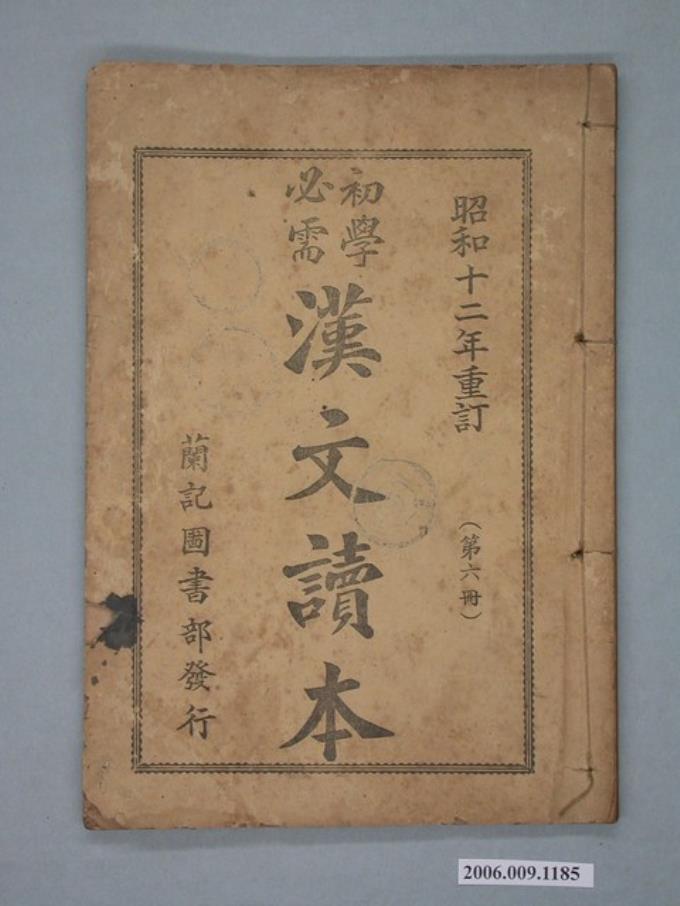 昭和十二年重訂
（第六冊）
初學
必需
漢文讀本
蘭記圖書部發行
2006.009.1185